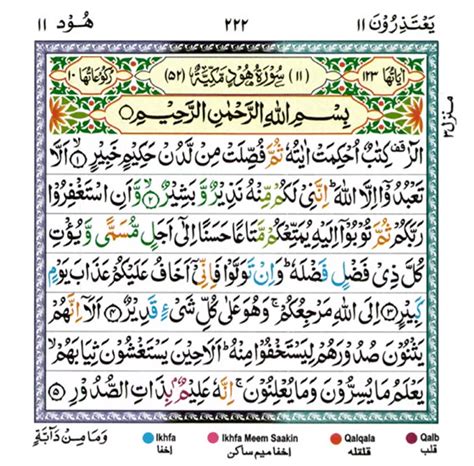 يَعْتَذِرُوْنَ ١١ ٢٢٢ هُوْد ١١
اٰيَاتُهَا ١٢٣ (١١) سُوْرَةُ هُوْدٍ مَكِّيَّةٌ (٥٢) رُكُوْعَاتُهَا ١٠
منزل ٣
بِسْمِ اللّٰهِ الرَّحْمٰنِ الرَّحِيْمِ
الٓرٰ كِتٰبٌ اُحْكِمَتْ اٰيٰتُهٗ ثُمَّ فُصِّلَتْ مِنْ لَّدُنْ حَكِيْمٍ خَبِيْرٍ ۙ‏﴿١﴾ اَلَّا
تَعْبُدُوْۤا اِلَّا اللّٰهَ ؕ اِنَّنِىْ لَـكُمْ مِّنْهُ نَذِيْرٌ وَّبَشِيْرٌ ۙ‏﴿٢﴾ وَّاَنِ اسْتَغْفِرُوْا
رَبَّكُمْ ثُمَّ تُوْبُوْۤا اِلَيْهِ يُمَتِّعْكُمْ مَّتَاعًا حَسَنًا اِلٰٓى اَجَلٍ مُّسَمًّى وَّيُؤْتِ
كُلَّ ذِىْ فَضْلٍ فَضْلَهٗ ؕ وَاِنْ تَوَلَّوْا فَاِنِّىْۤ اَخَافُ عَلَيْكُمْ عَذَابَ يَوْمٍ
كَبِيْرٍ‏﴿٣﴾ اِلَى اللّٰهِ مَرْجِعُكُمْ ۚ وَهُوَ عَلٰى كُلِّ شَىْءٍ قَدِيْرٌ‏﴿٤﴾ اَلَاۤ اِنَّهُمْ
يَثْنُوْنَ صُدُوْرَهُمْ لِيَسْتَخْفُوْا مِنْهُ ؕ اَلَا حِيْنَ يَسْتَغْشُوْنَ ثِيَابَهُمْ ۙ
يَعْلَمُ مَا يُسِرُّوْنَ وَمَا يُعْلِنُوْنَ ۚ اِنَّهٗ عَلِيْمٌۢ بِذَاتِ الصُّدُوْرِ‏﴿٥﴾
وَمَا مِنْ دَآبَّةٍ
Ikhfa Ikhfa Meem Saakin Qalqala Qalb
اخفا اخفا میم ساکن قلقله قلب